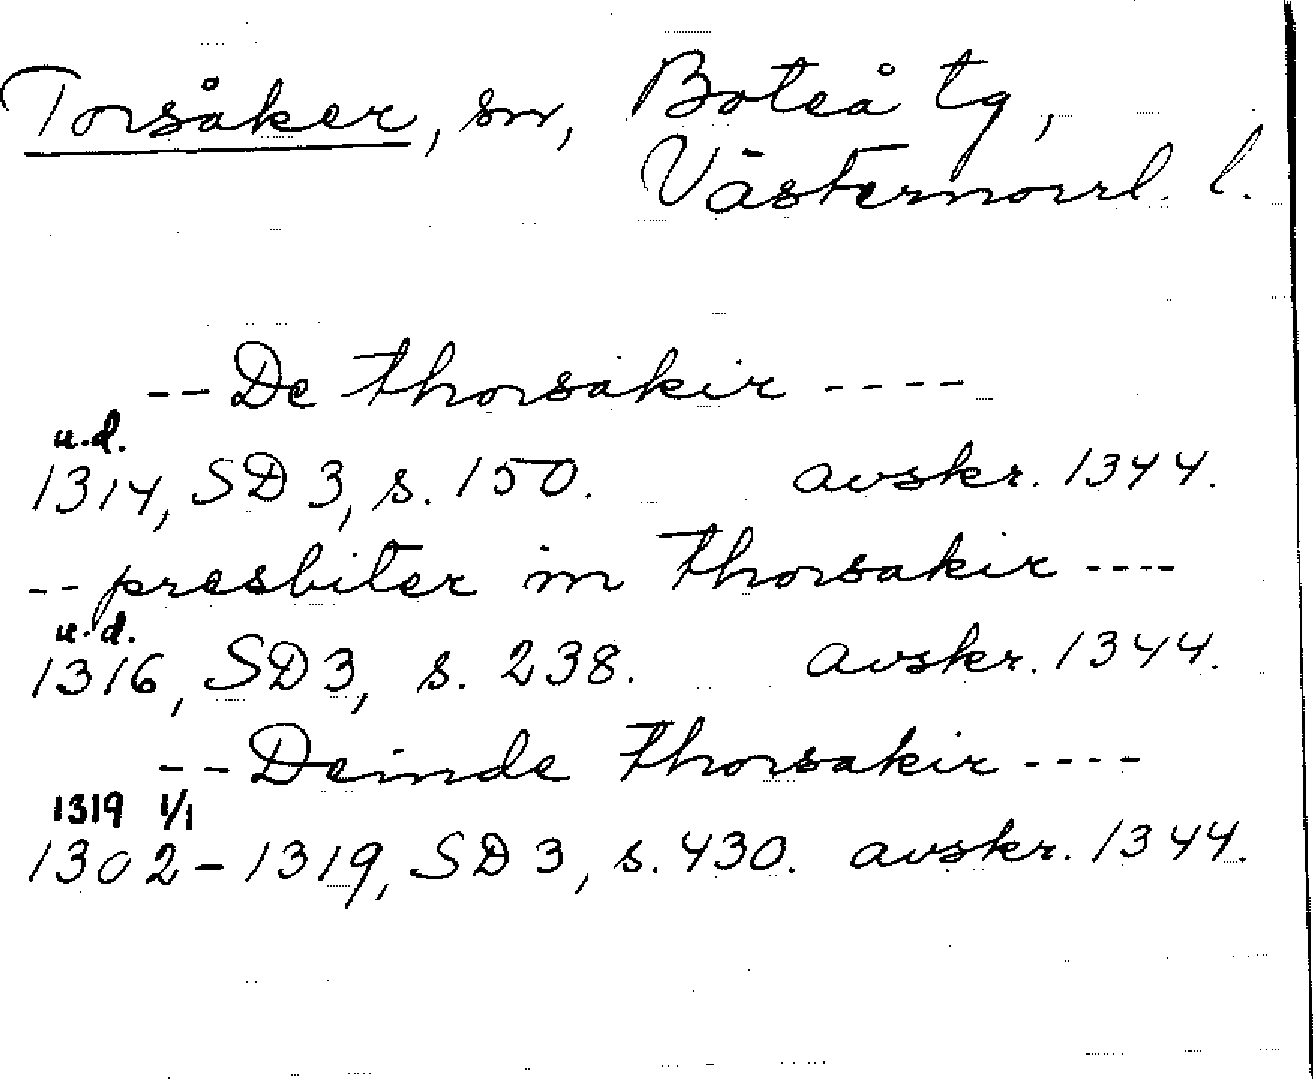 Torsåker, sn, Boteå tg,
Västernorrl. l.
-- De thorsakir ----
u.d.
1314, SD 3, s. 150. avskr. 1344.
-- presbiter in Thorsakir ----
u.d.
1316, SD 3, s. 238. avskr. 1344.
-- Deinde Thorsakir ----
1319 1/1
1302-1319, SD 3, s. 430. avskr. 1344.